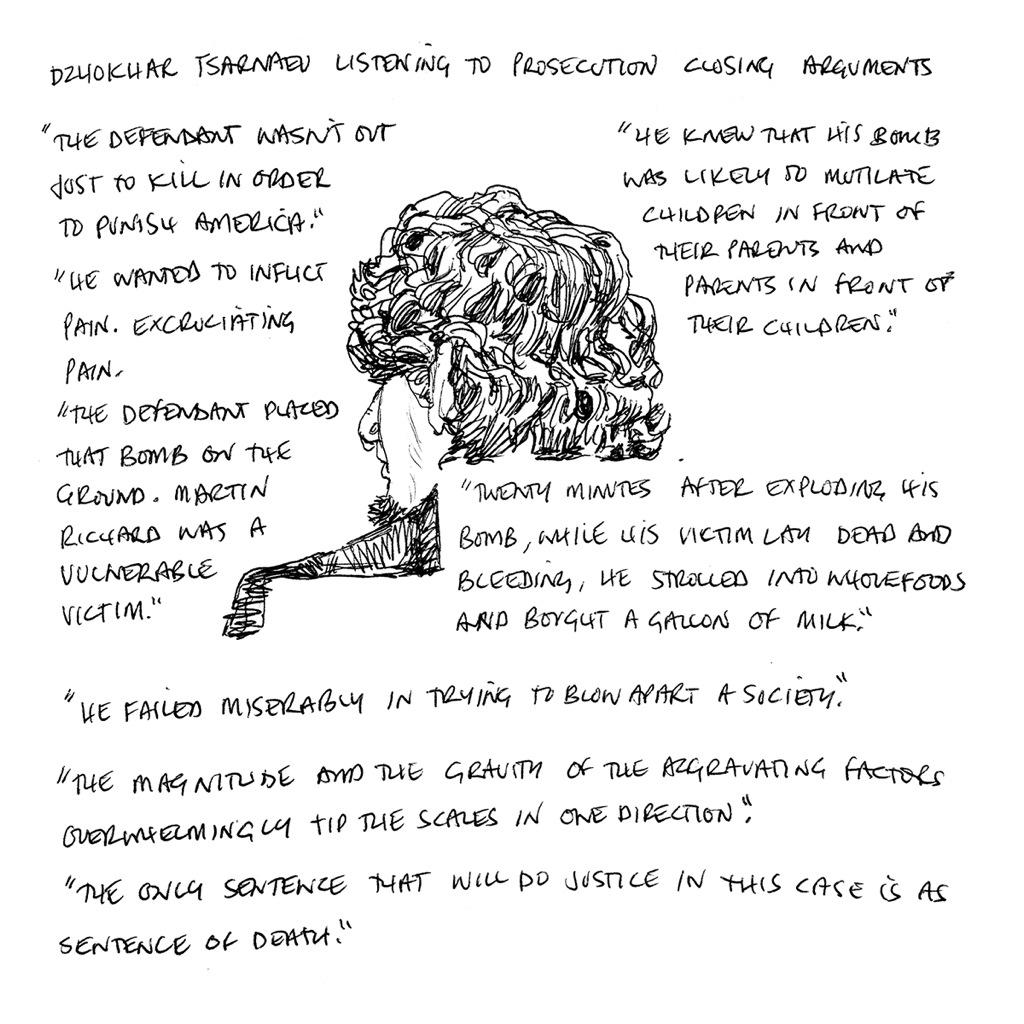 DZHOKHAR TSARNAEV LISTENING TO PROSECUTION CLOSING ARGUMENTS
"THE DEFENDANT WASN'T OUT
JUST TO KILL IN ORDER
TO PUNISH AMERICA."
"HE WANTED TO INFLICT
PAIN. EXCRUCIATING
PAIN.
"THE DEFENDANT PLACED
THAT BOMB ON THE
GROUND. MARTIN
RICHARD WAS A
VULNERABLE
VICTIM."
"HE KNEW THAT HIS BOMB
WAS LIKELY TO MUTILATE
CHILDREN IN FRONT OF
THEIR PARENTS AND
PARENTS IN FRONT OF
THEIR CHILDREN."
"TWENTY MINUTES AFTER EXPLODING HIS
BOMB, WHILE HIS VICTIM LAY DEAD AND
BLEEDING, HE STROLLED INTO WHOLEFOODS
AND BOUGHT A GALLON OF MILK."
"HE FAILED MISERABLY IN TRYING TO BLOW APART A SOCIETY."
"THE MAGNITUDE AND THE GRAVITY OF THE AGGRAVATING FACTORS
OVERWHELMINGLY TIP THE SCALES IN ONE DIRECTION".
"THE ONLY SENTENCE THAT WILL DO JUSTICE IN THIS CASE IS AS
SENTENCE OF DEATH."